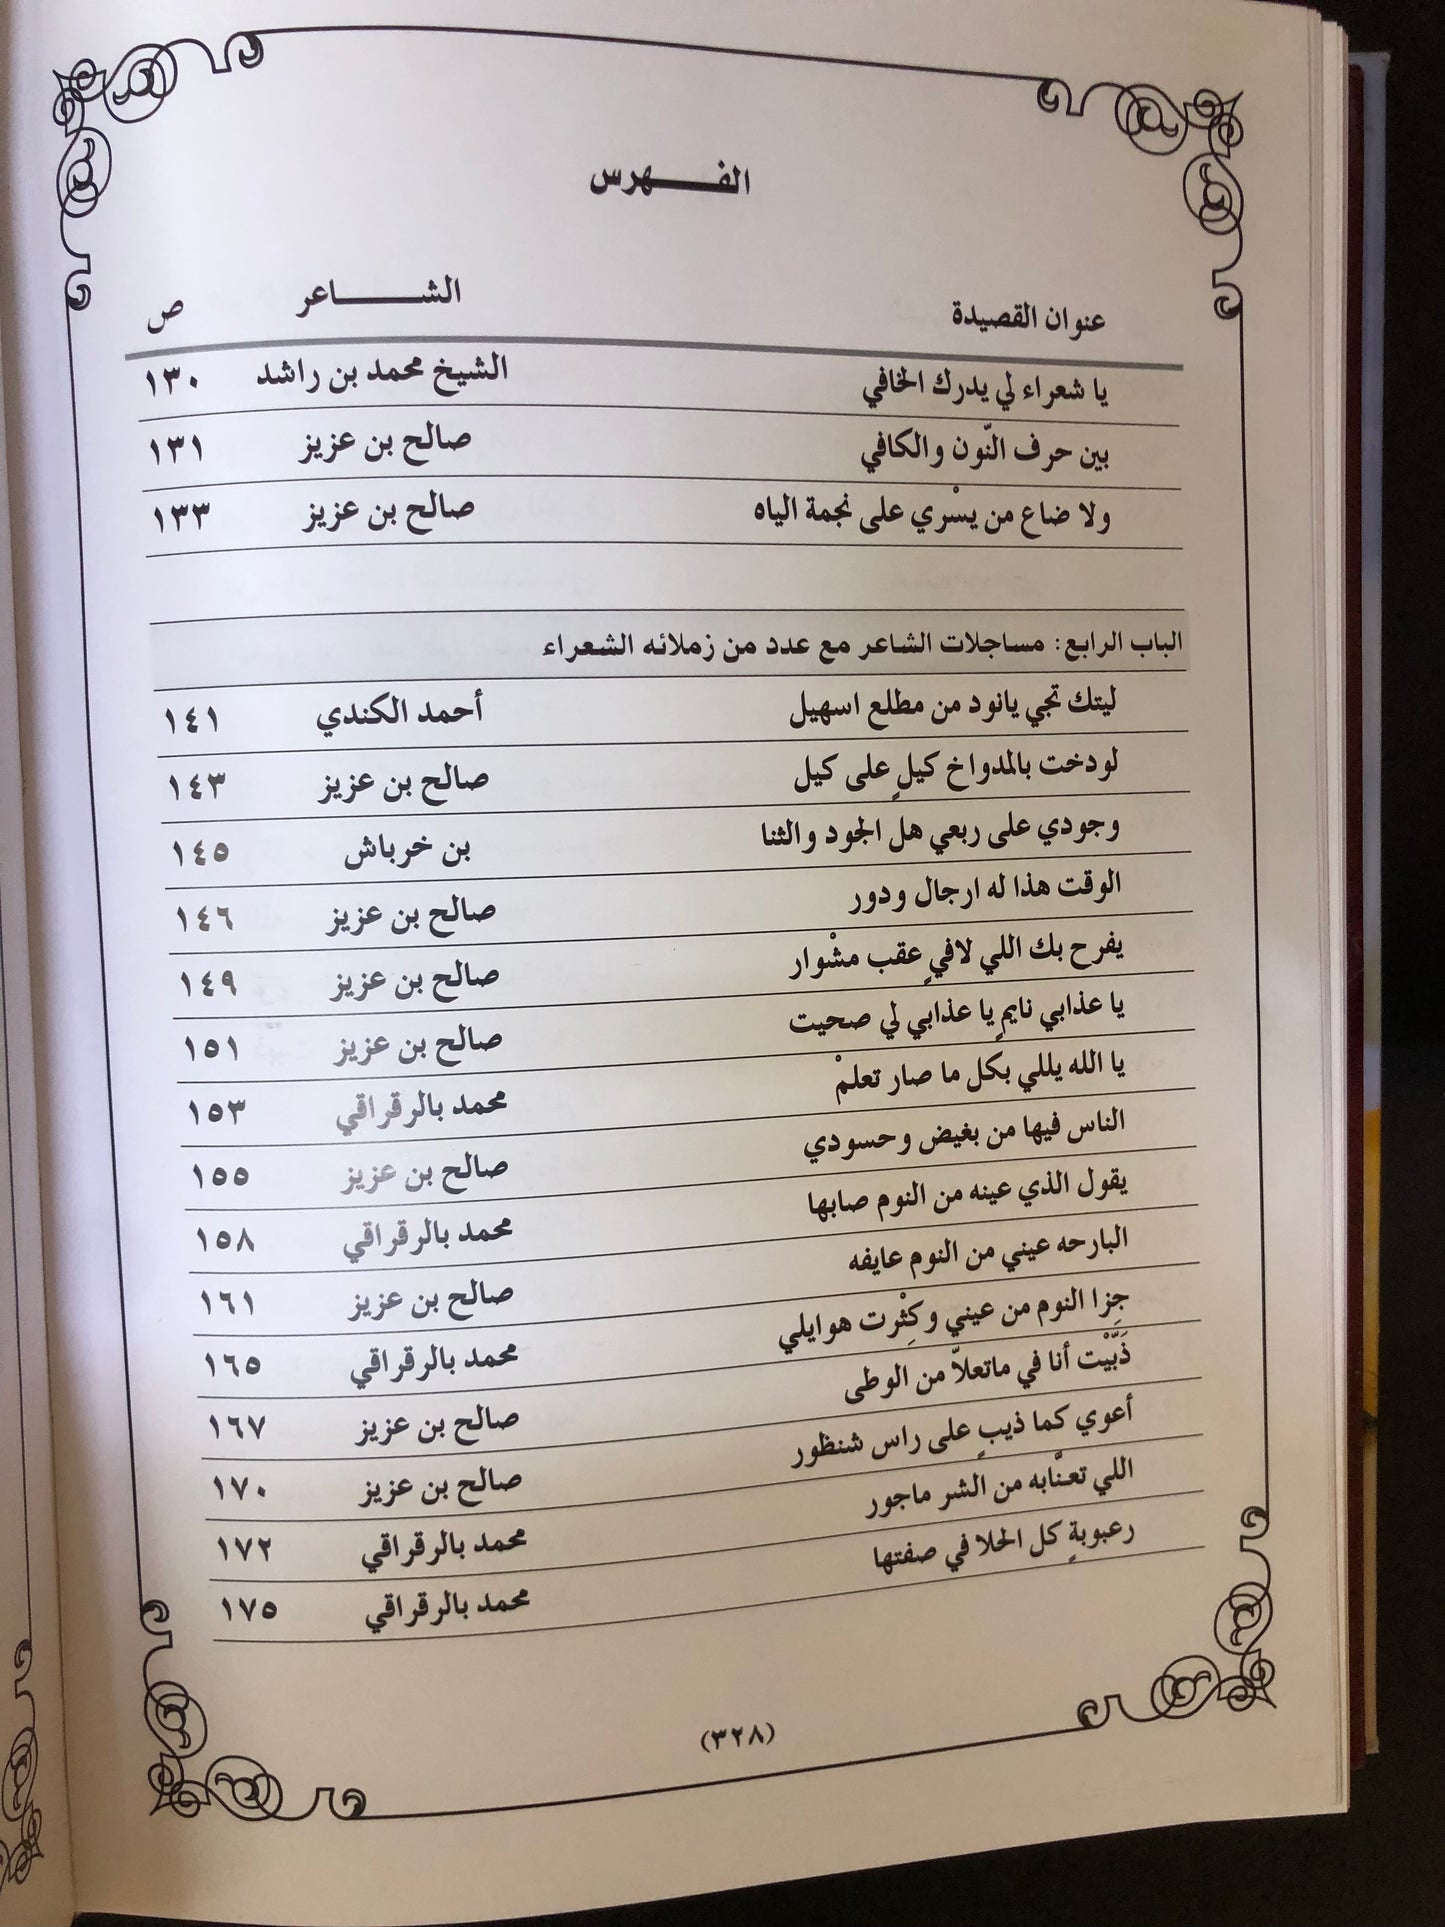 الفهرس
عنوان القصيدة الشاعر ص
يا شعراء لي يدرك الخافي الشيخ محمد بن راشد ١٣٠
بين حرف النّون والكافي صالح بن عزيز ١٣١
ولا ضاع من يسْري على نجمة الياه صالح بن عزيز ١٣٣
الباب الرابع: مساجلات الشاعر مع عدد من زملائه الشعراء
ليتك تجي يانود من مطلع اسهيل أحمد الكندي ١٤١
لودخت بالمدواخ كيلٍ على كيل صالح بن عزيز ١٤٣
وجودي على ربعي هل الجود والثنا بن خرباش ١٤٥
الوقت هذا له ارجال ودور صالح بن عزيز ١٤٦
يفرح بك اللي لافيٍ عقب مشْوار صالح بن عزيز ١٤٩
يا عذابي نايمٍ يا عذابي لي صحيت صالح بن عزيز ١٥١
يا الله يللي بكل ما صار تعلمْ محمد بالرقراقي ١٥٣
الناس فيها من بغيض وحسودي صالح بن عزيز ١٥٥
يقول الذي عينه من النوم صابها محمد بالرقراقي ١٥٨
البارحه عيني من النوم عايفه صالح بن عزيز ١٦١
جِزا النوم من عيني وكِثْرت هوايلي محمد بالرقراقي ١٦٥
ذَبّيْت أنا في ماتعلاّ من الوطى صالح بن عزيز ١٦٧
أعوي كما ذيبٍ على راس شنظور صالح بن عزيز ١٧٠
اللي تعنَّابه من الشر ماجور محمد بالرقراقي ١٧٢
رعبوبةٍ كل الحلا في صفتها محمد بالرقراقي ١٧٥
(٣٢٨)